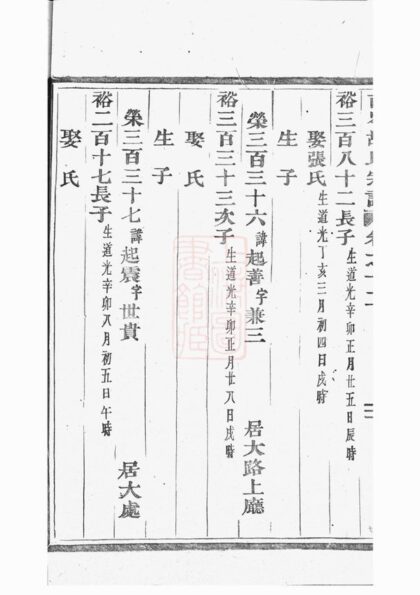 裕三百八十二長子生道光辛卯正月廿五日辰時
娶張氏生道光丁亥三月初四日戌時
生子
榮三百三十六諱起善字兼三 居大路上廳
裕三百三十三次子生道光辛卯正月廿八日戌時
娶氏
生子
榮三百三十七諱起震字世貴 居大處
裕二百十七長子生道光辛卯八月初五日午時
娶氏